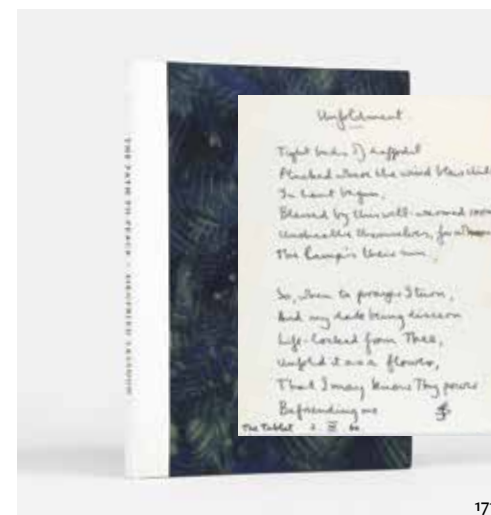 THE PATH TO PEACE · SIEGFRIED SASSOON
Unfoldment
Tight buds of daffodil
Plucked where the wind blew chill
In Lent begun,
Blessed by this well-warmed room
Unsheathe themselves, for
The lamp is their sun.
So, when to prayer I turn,
And my dark being discern
Life-locked from Thee,
Unfold it as a flower,
That I may know Thy power
Befriending me
The Tablet 2. III 60
171